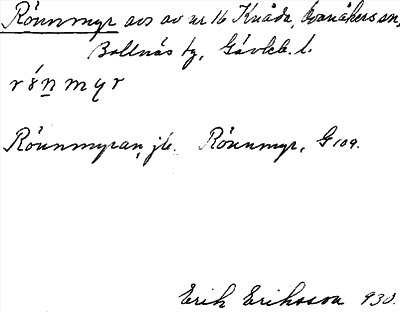 Rönnmyr avs av nr 16 Knåda, Ovanåkers sn,
Bollnäs tg, Gävleb. l.
Rönnmyran, jfr. Rönnmyr, G 109.
Erik Eriksson 930.